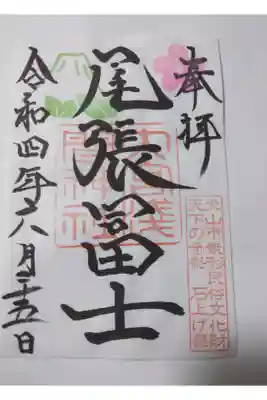 奉拝
犬山市無形民俗文化財
天下の奇祭 石上げ祭
尾張冨士
令和四年六月二十五日